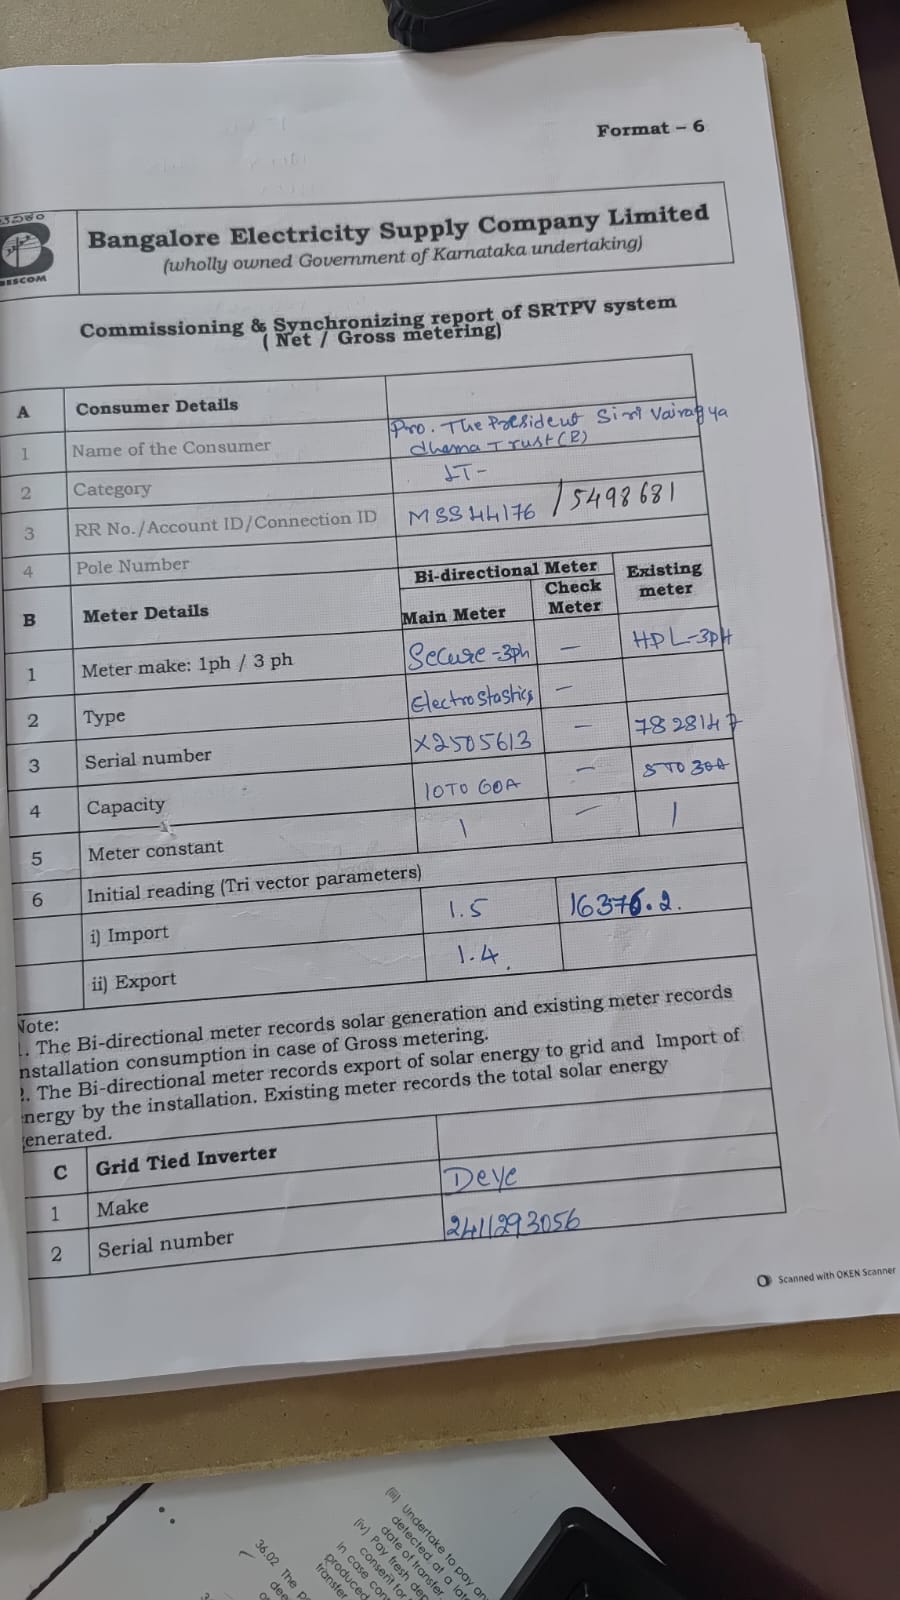 Format - 6
BESCOM
Bangalore Electricity Supply Company Limited
(wholly owned Government of Karnataka undertaking)
Commissioning & Synchronizing report of SRTPV system
( Net / Gross metering)
A Consumer Details
1 Name of the Consumer Pro. The President Siri Vairagya
dhama Trust (R)
2 Category LT-
3 RR No./Account ID/Connection ID MSS44176 / 5498681
4 Pole Number
B Meter Details Bi-directional Meter Existing meter
Main Meter Check Meter
1 Meter make: 1ph / 3 ph Secure-3ph — HPL-3PH
2 Type Electrostastics —
3 Serial number X2505613 — 7828147
4 Capacity 10TO 60A — 5TO 30A
5 Meter constant 1 — 1
6 Initial reading (Tri vector parameters)
i) Import 1.5 16376.2.
ii) Export 1.4.
Note:
1. The Bi-directional meter records solar generation and existing meter records
installation consumption in case of Gross metering.
2. The Bi-directional meter records export of solar energy to grid and Import of
energy by the installation. Existing meter records the total solar energy
generated.
C Grid Tied Inverter
1 Make Deye
2 Serial number 2411293056
Scanned with OKEN Scanner
(iii) Undertake to pay
detected at a
date of transfer
(iv) Pay fresh
consent for
in case
produced
transfer
36.02 The